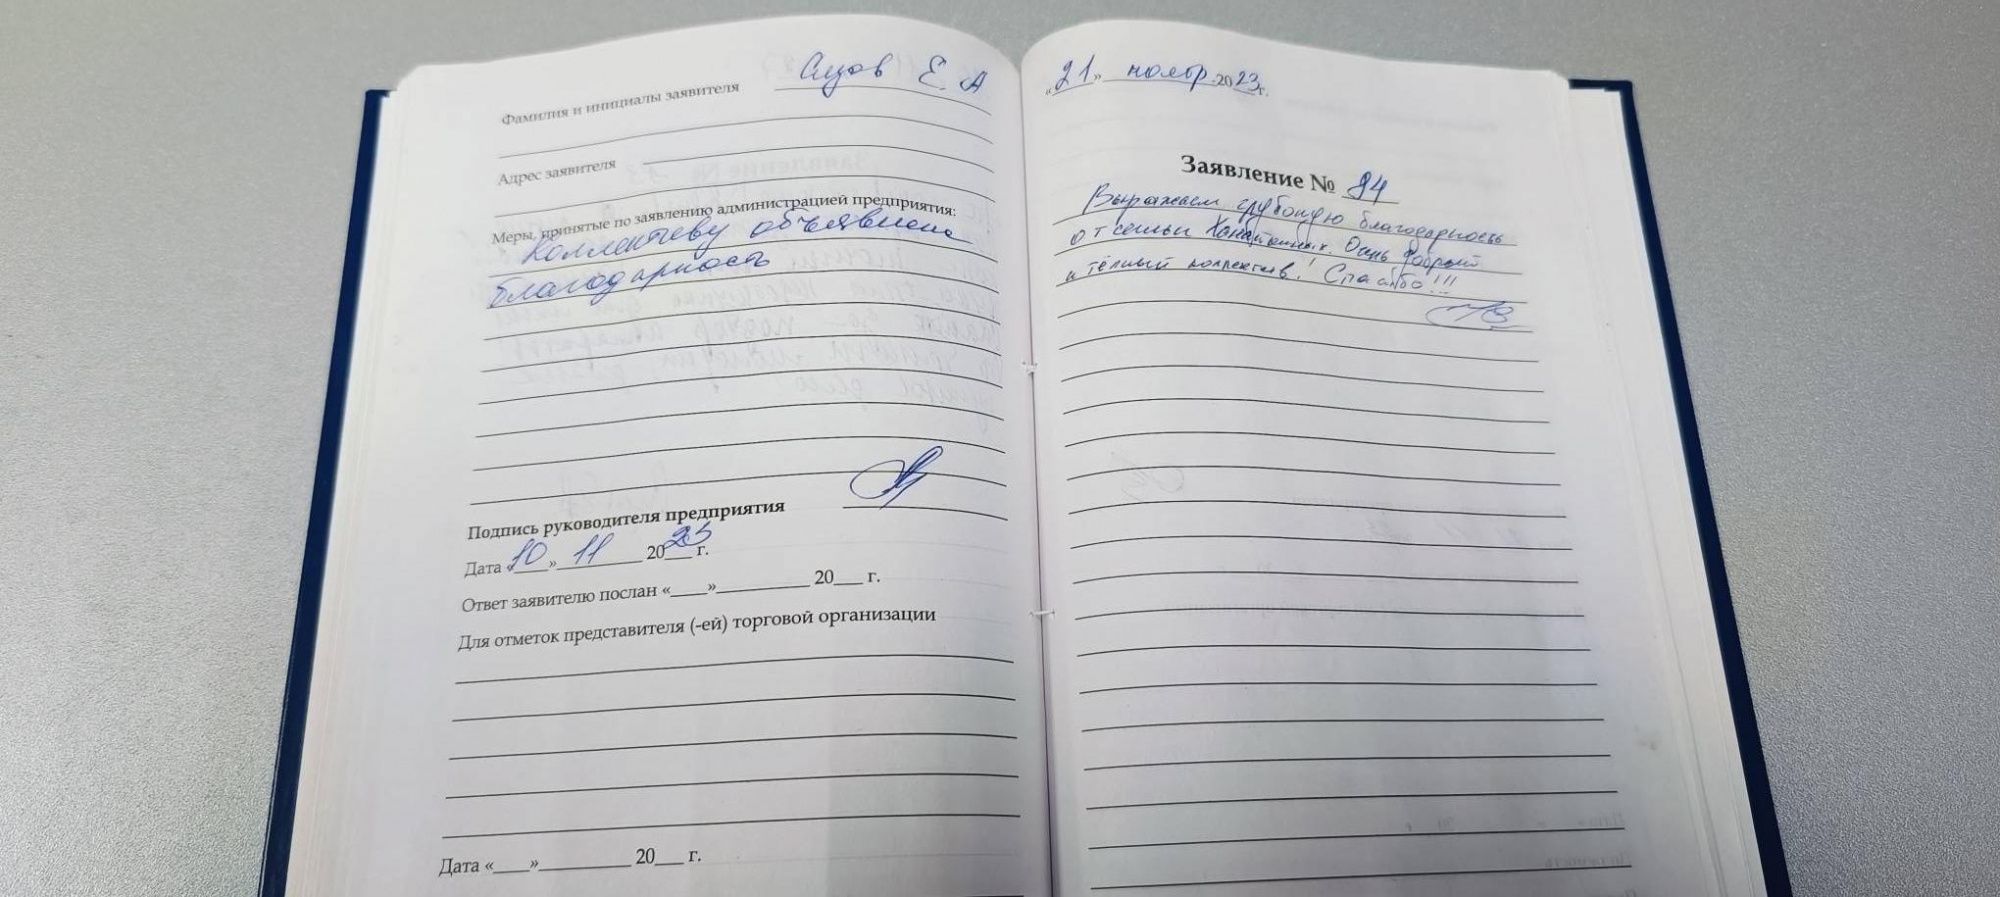 Фамилия и инициалы заявителя Е. А
Адрес заявителя
Меры, принятые по заявлению администрацией предприятия:
Коллективу объявлена
благодарность
Подпись руководителя предприятия
Дата «10» 11 2023 г.
Ответ заявителю послан «___»_________ 20___ г.
Для отметок представителя (-ей) торговой организации
Дата «___»_________ 20___ г.
«21» ноябр 2023г.
Заявление № 84
Выражаем глубокую благодарность
от семьи Очень добрый
и тёплый коллектив! Спасибо!!!